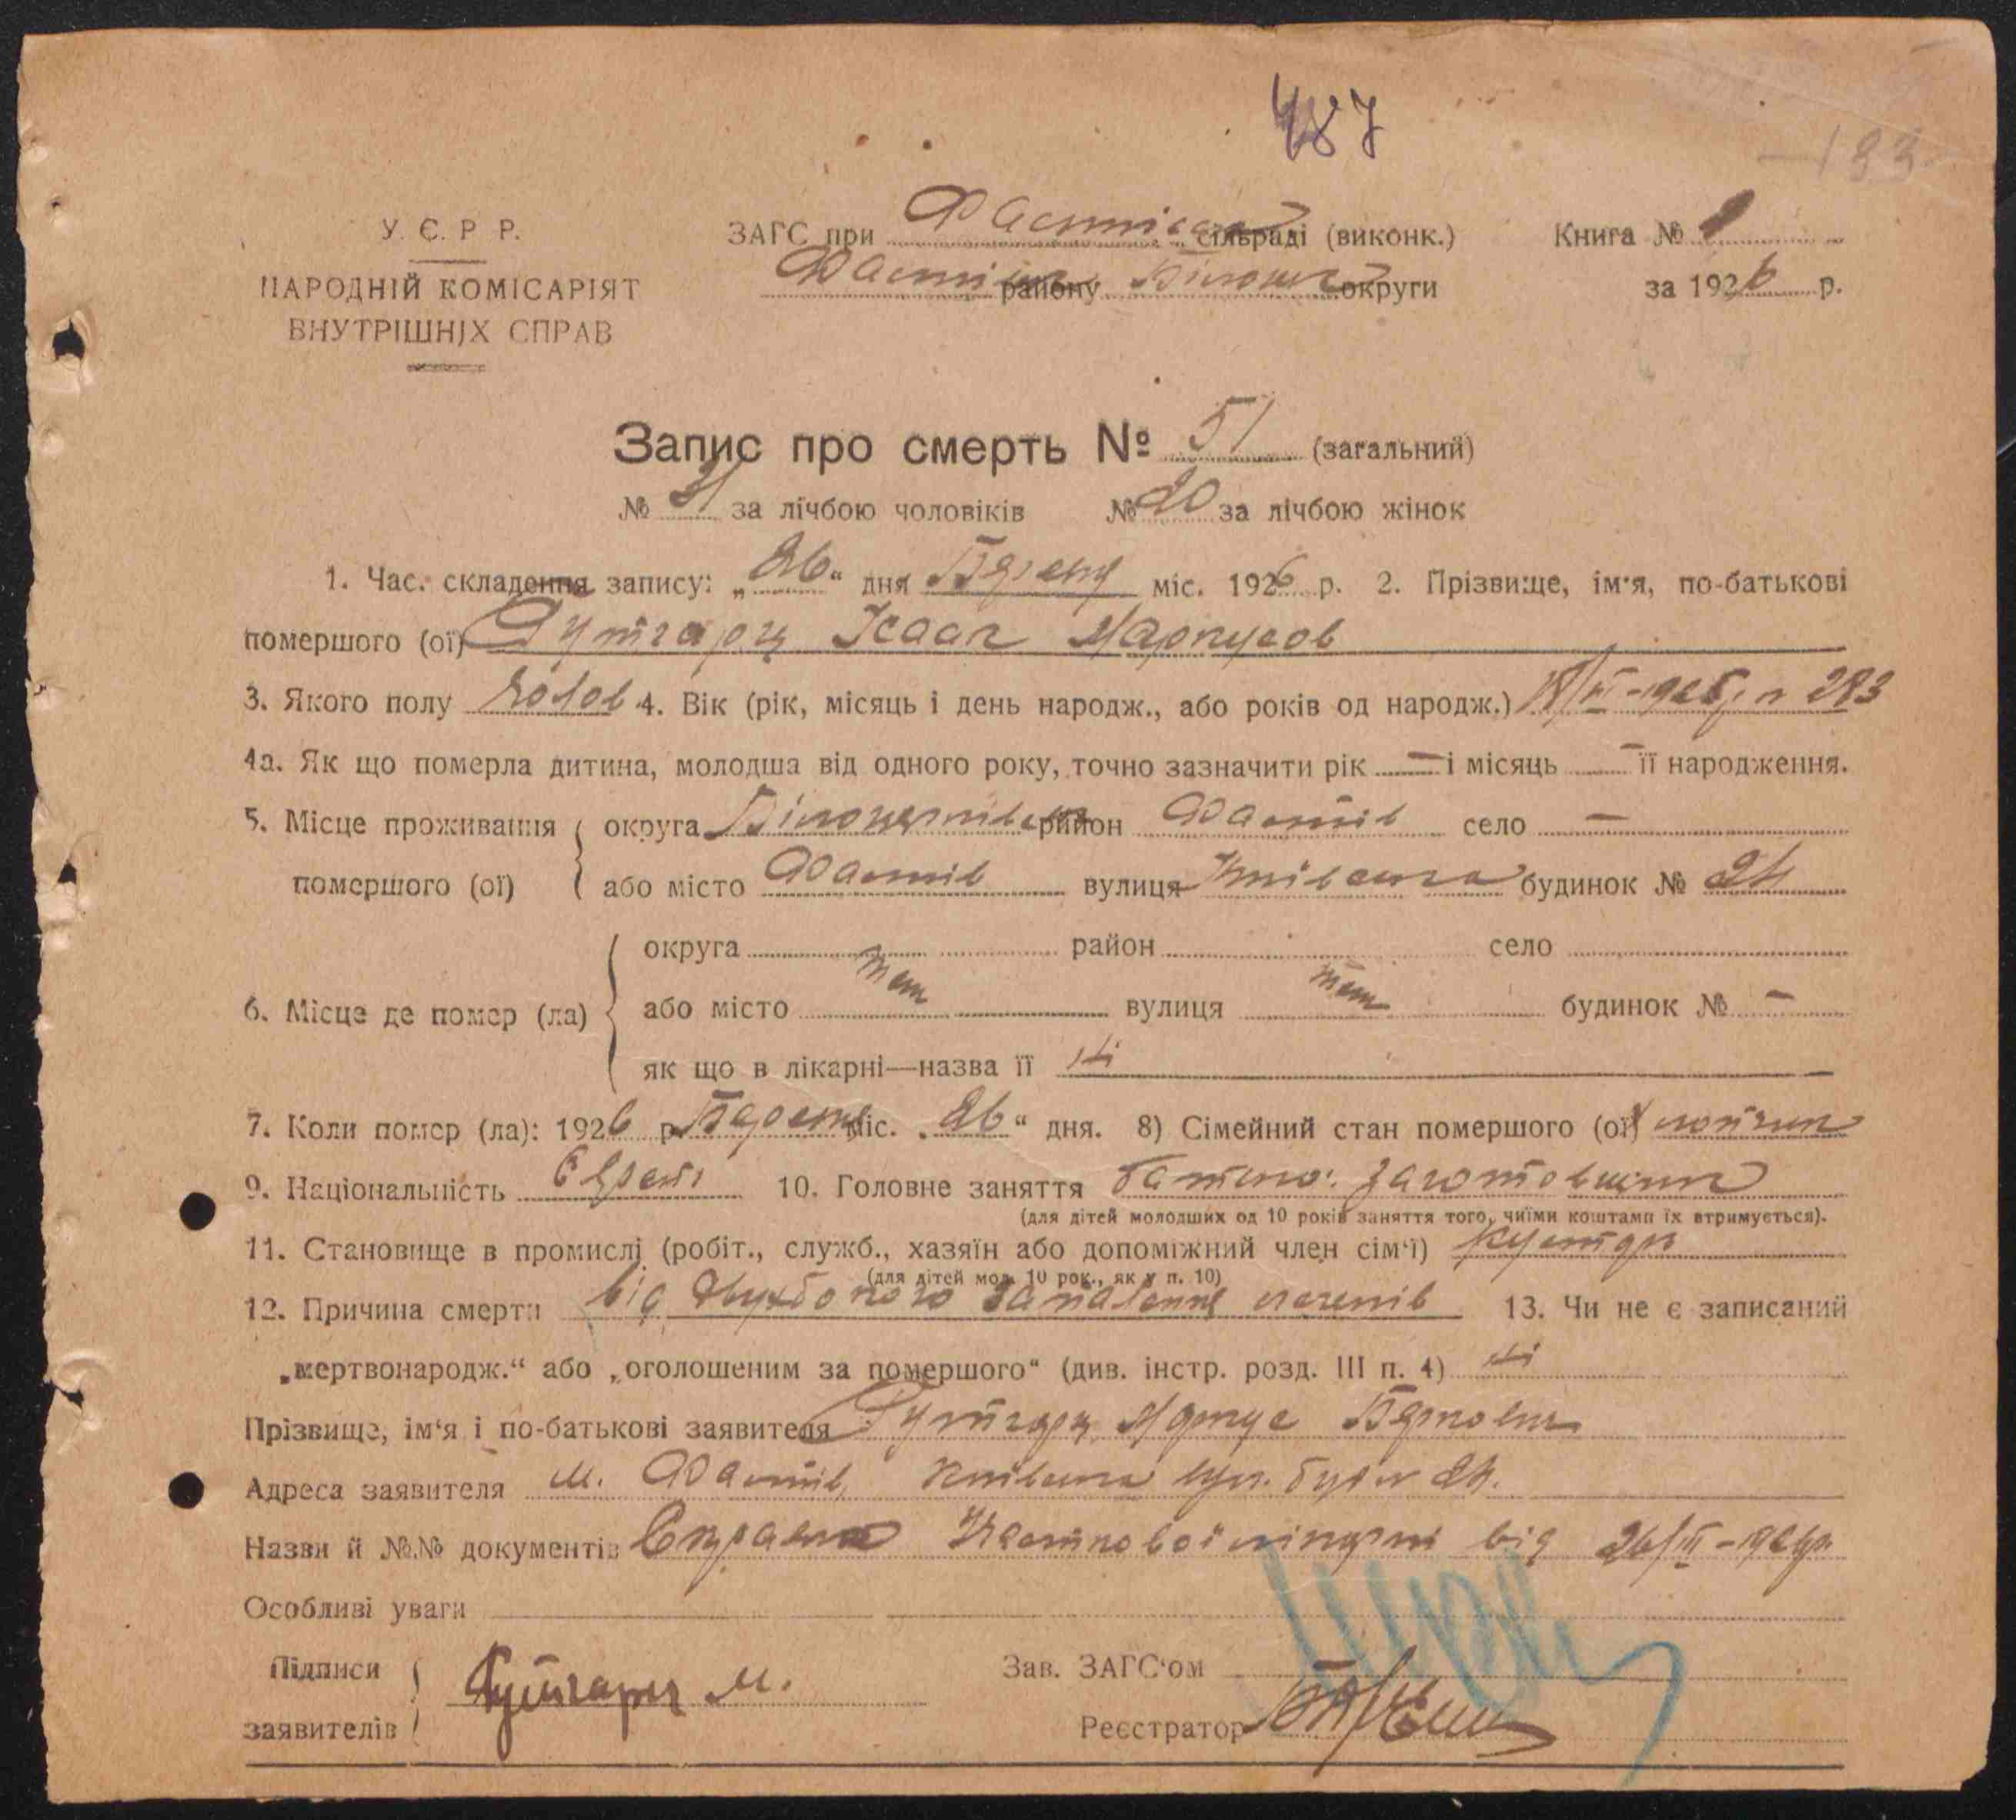 487
183
У. С. Р Р.
НАРОДНІЙ КОМІСАРІЯТ
ВНУТРІШНІХ СПРАВ
ЗАГС при сільраді (виконк.)
району округи
Книга № 1
за 1926 р.
Запис про смерть № 51 (загальний)
№ 31 за лічбою чоловіків № 20 за лічбою жінок
1. Час. складення запису: „26“ дня міс. 1926 р. 2. Прізвище, ім'я, по-батькові
помершого (ої) Гутгарц Ісаак Маркусов
3. Якого полу Чолов 4. Вік (рік, місяць і день народж., або років од народж.)
4а. Як що померла дитина, молодша від одного року, точно зазначити рік — і місяць — її народження.
5. Місце проживання округа Білоцерківськ район Фастів село —
помершого (ої) або місто Фастів вулиця Київська будинок № 24
округа район село
6. Місце де помер (ла) або місто там вулиця там будинок № —
як що в лікарні—назва її ні
7. Коли помер (ла): 1926 р. міс. „26“ дня. 8) Сімейний стан помершого (ої) хлопчик
9. Національність Єврей 10. Головне заняття батько: заготовщик
(для дітей молодших од 10 років заняття того, чиїми коштами їх втримується).
11. Становище в промислі (робіт., служб., хазяїн або допоміжний член сім'ї) кустарь
(для дітей мол. 10 рок., як у п. 10)
12. Причина смерти від запалення легенів 13. Чи не є записаний
„мертвонародж.“ або „оголошеним за помершого“ (див. інстр. розд. III п. 4) ні
Прізвище, ім'я і по-батькові заявителя Гутгарц Маркус
Адреса заявителя м. Фастів, Київська вул. буд № 24.
Назви й №№ документів лікарні від 26/III-1926р.
Особливі уваги
Підписи Гутгарц М. Зав. ЗАГС'ом
заявителів Реєстратор